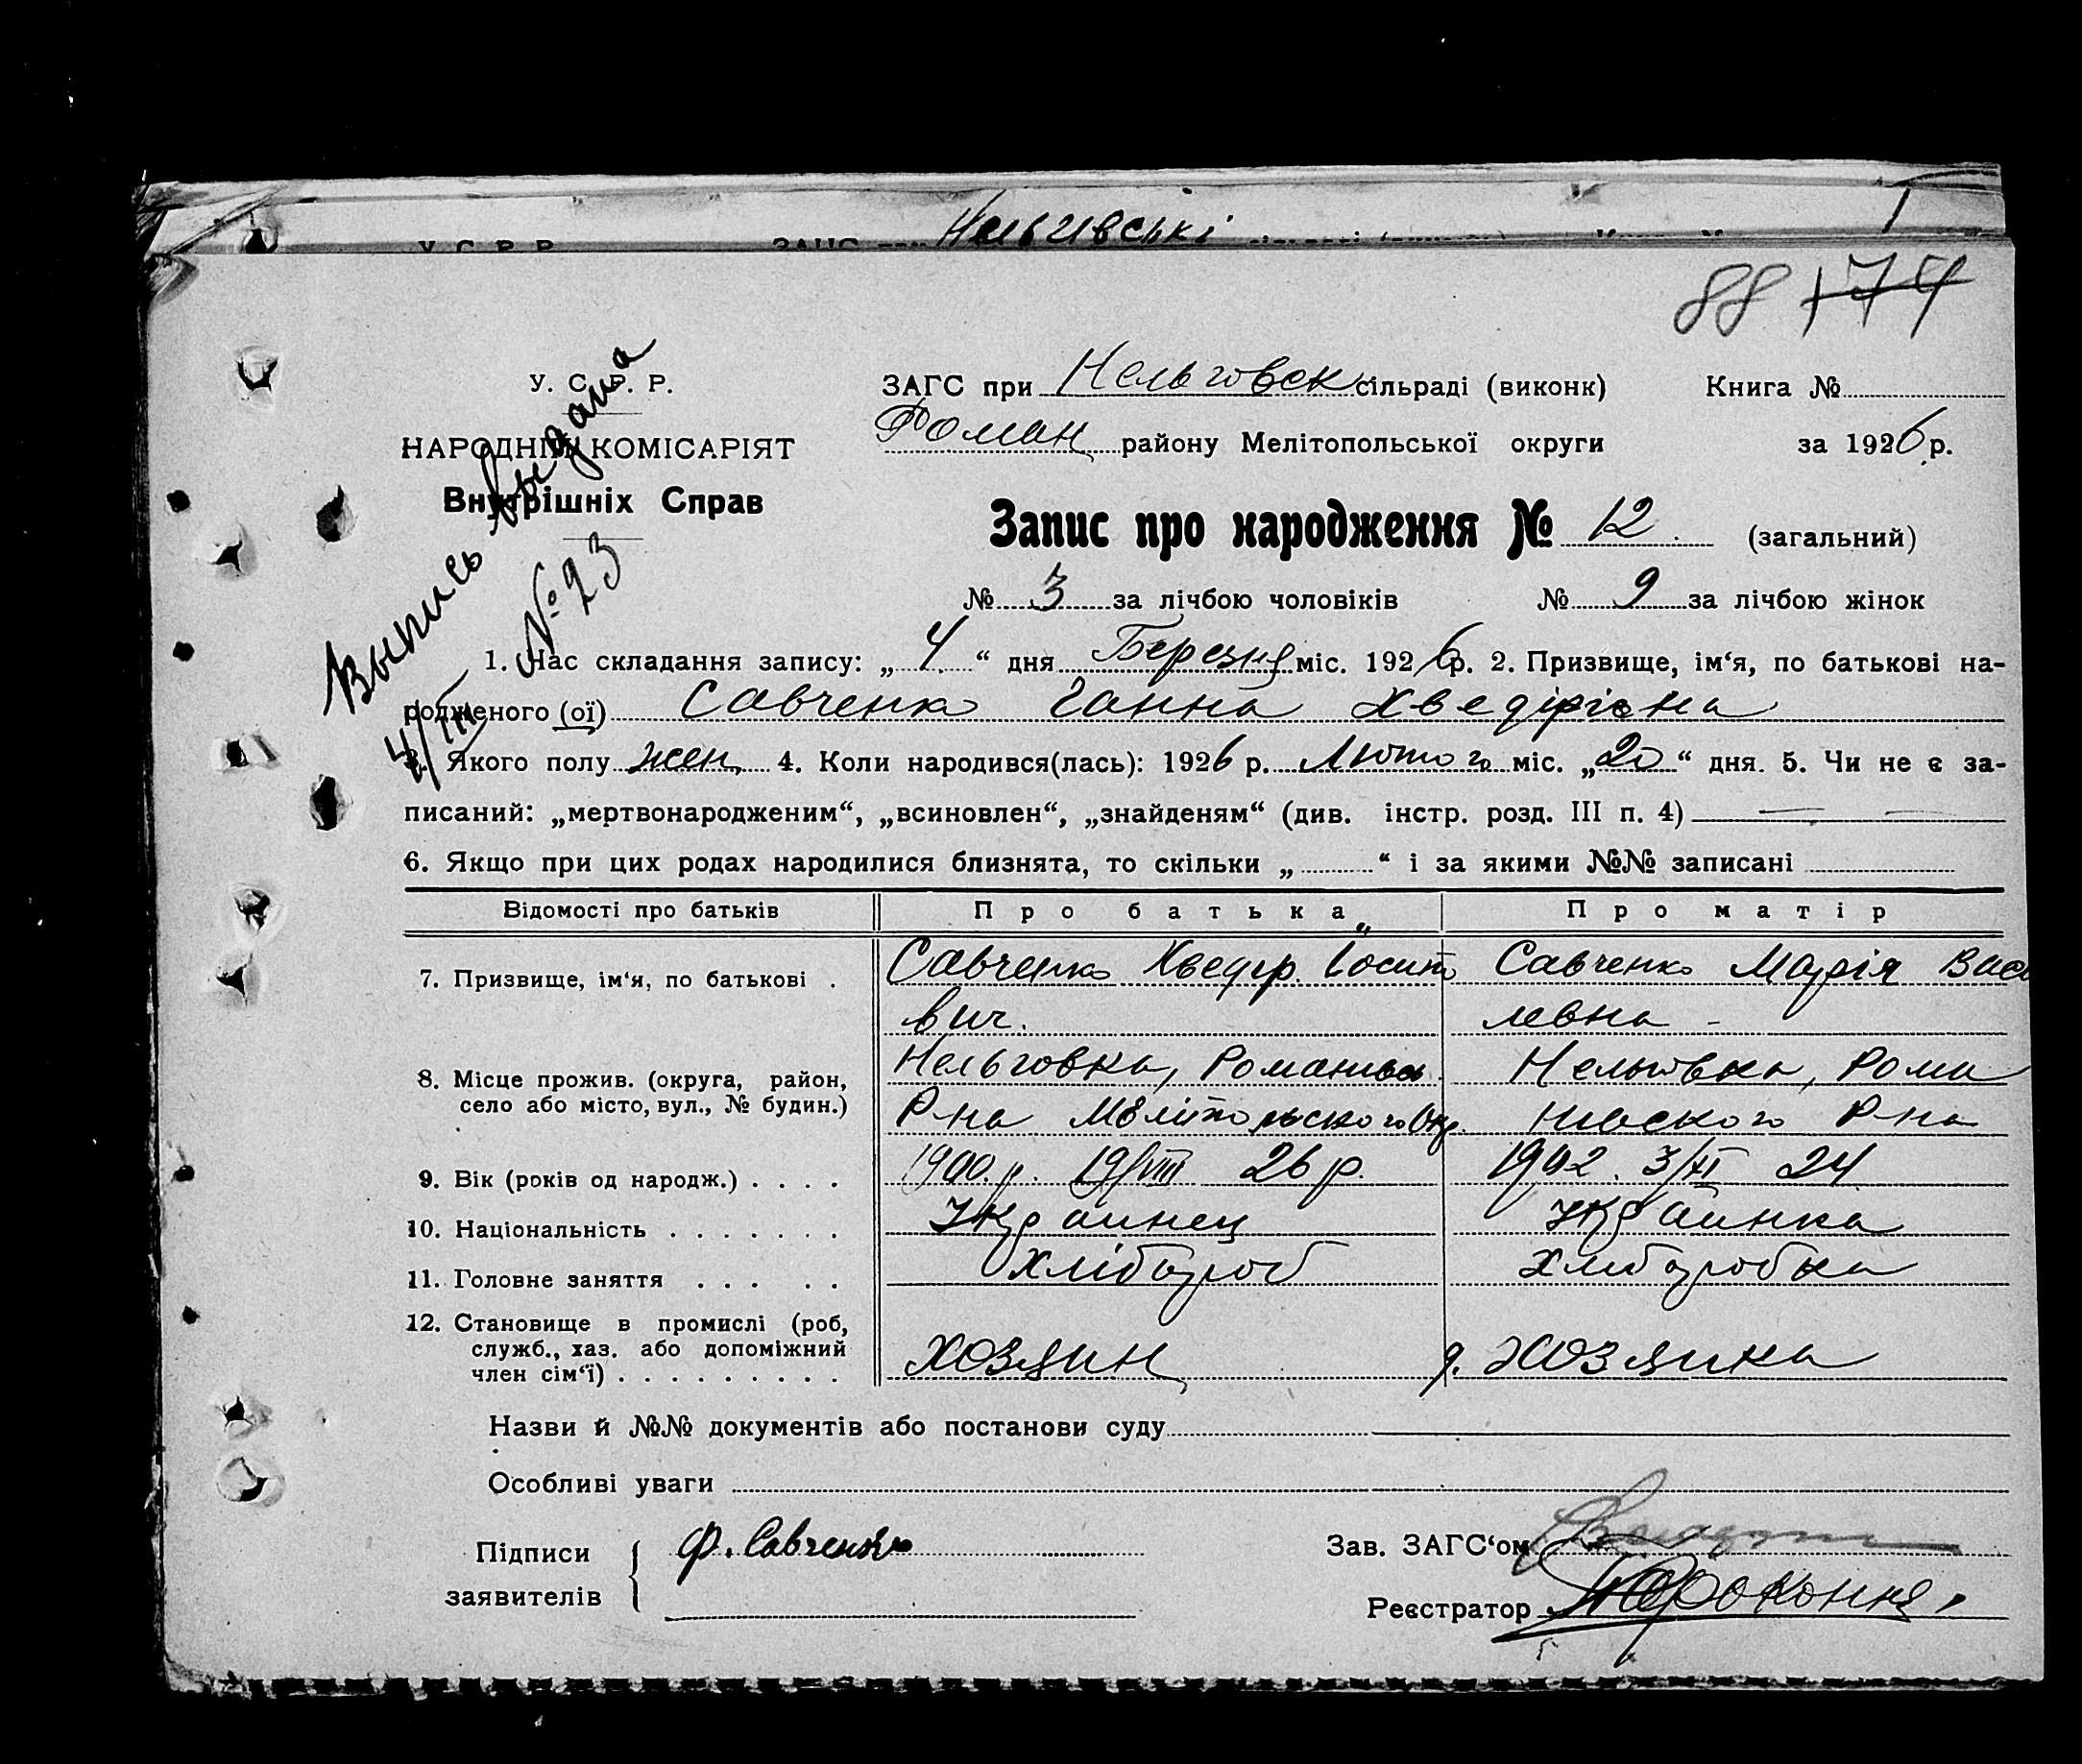 Нельгивські
88 174
У. С. Р. Р.
НАРОДНІЙ КОМІСАРІЯТ
Внутрішніх Справ
Выпись выдана
№ 23
4/III
ЗАГС при Нельговск сільраді (виконк) Книга №
Роман району Мелітопольської округи за 1926 р.
Запис про народження № 12. (загальний)
№ 3 за лічбою чоловіків № 9 за лічбою жінок
1. Час складання запису: „4“ дня Березня міс. 1926 р. 2. Призвище, ім‘я, по батькові на-
родженого (ої) Савченко Ганна Хведірівна
3. Якого полу жен 4. Коли народився(лась): 1926 р. Лютого міс. „20“ дня. 5. Чи не є за-
писаний: „мертвонародженим“, „всиновлен“, „знайденям“ (див. інстр. розд. III п. 4) — —
6. Якщо при цих родах народилися близнята, то скільки „ “ і за якими №№ записані
Відомості про батьків Про батька Про матір
7. Призвище, ім‘я, по батькові . Савченко Хведір. Савченко Марія Васи
вич. левна -
8. Місце прожив. (округа, район, Нельговка, Нельговка, Рома
село або місто, вул., № будин.) Р-на нивского Р-на
9. Вік (років од народж.) . . . . 1900.р. 19/VIII 26 р. 1902. 3/XI 24
10. Національність . . . . . . . Украинец Украинка
11. Головне заняття . . . . . Хлібороб Хлиборобка
12. Становище в промислі (роб,
служб., хаз. або допоміжний
член сім‘ї) . . . . . . . . . хозяин д. хозяина
Назви й №№ документів або постанови суду
Особливі уваги
Підписи Ф. Савченко Зав. ЗАГС‘ом
заявителів Реєстратор